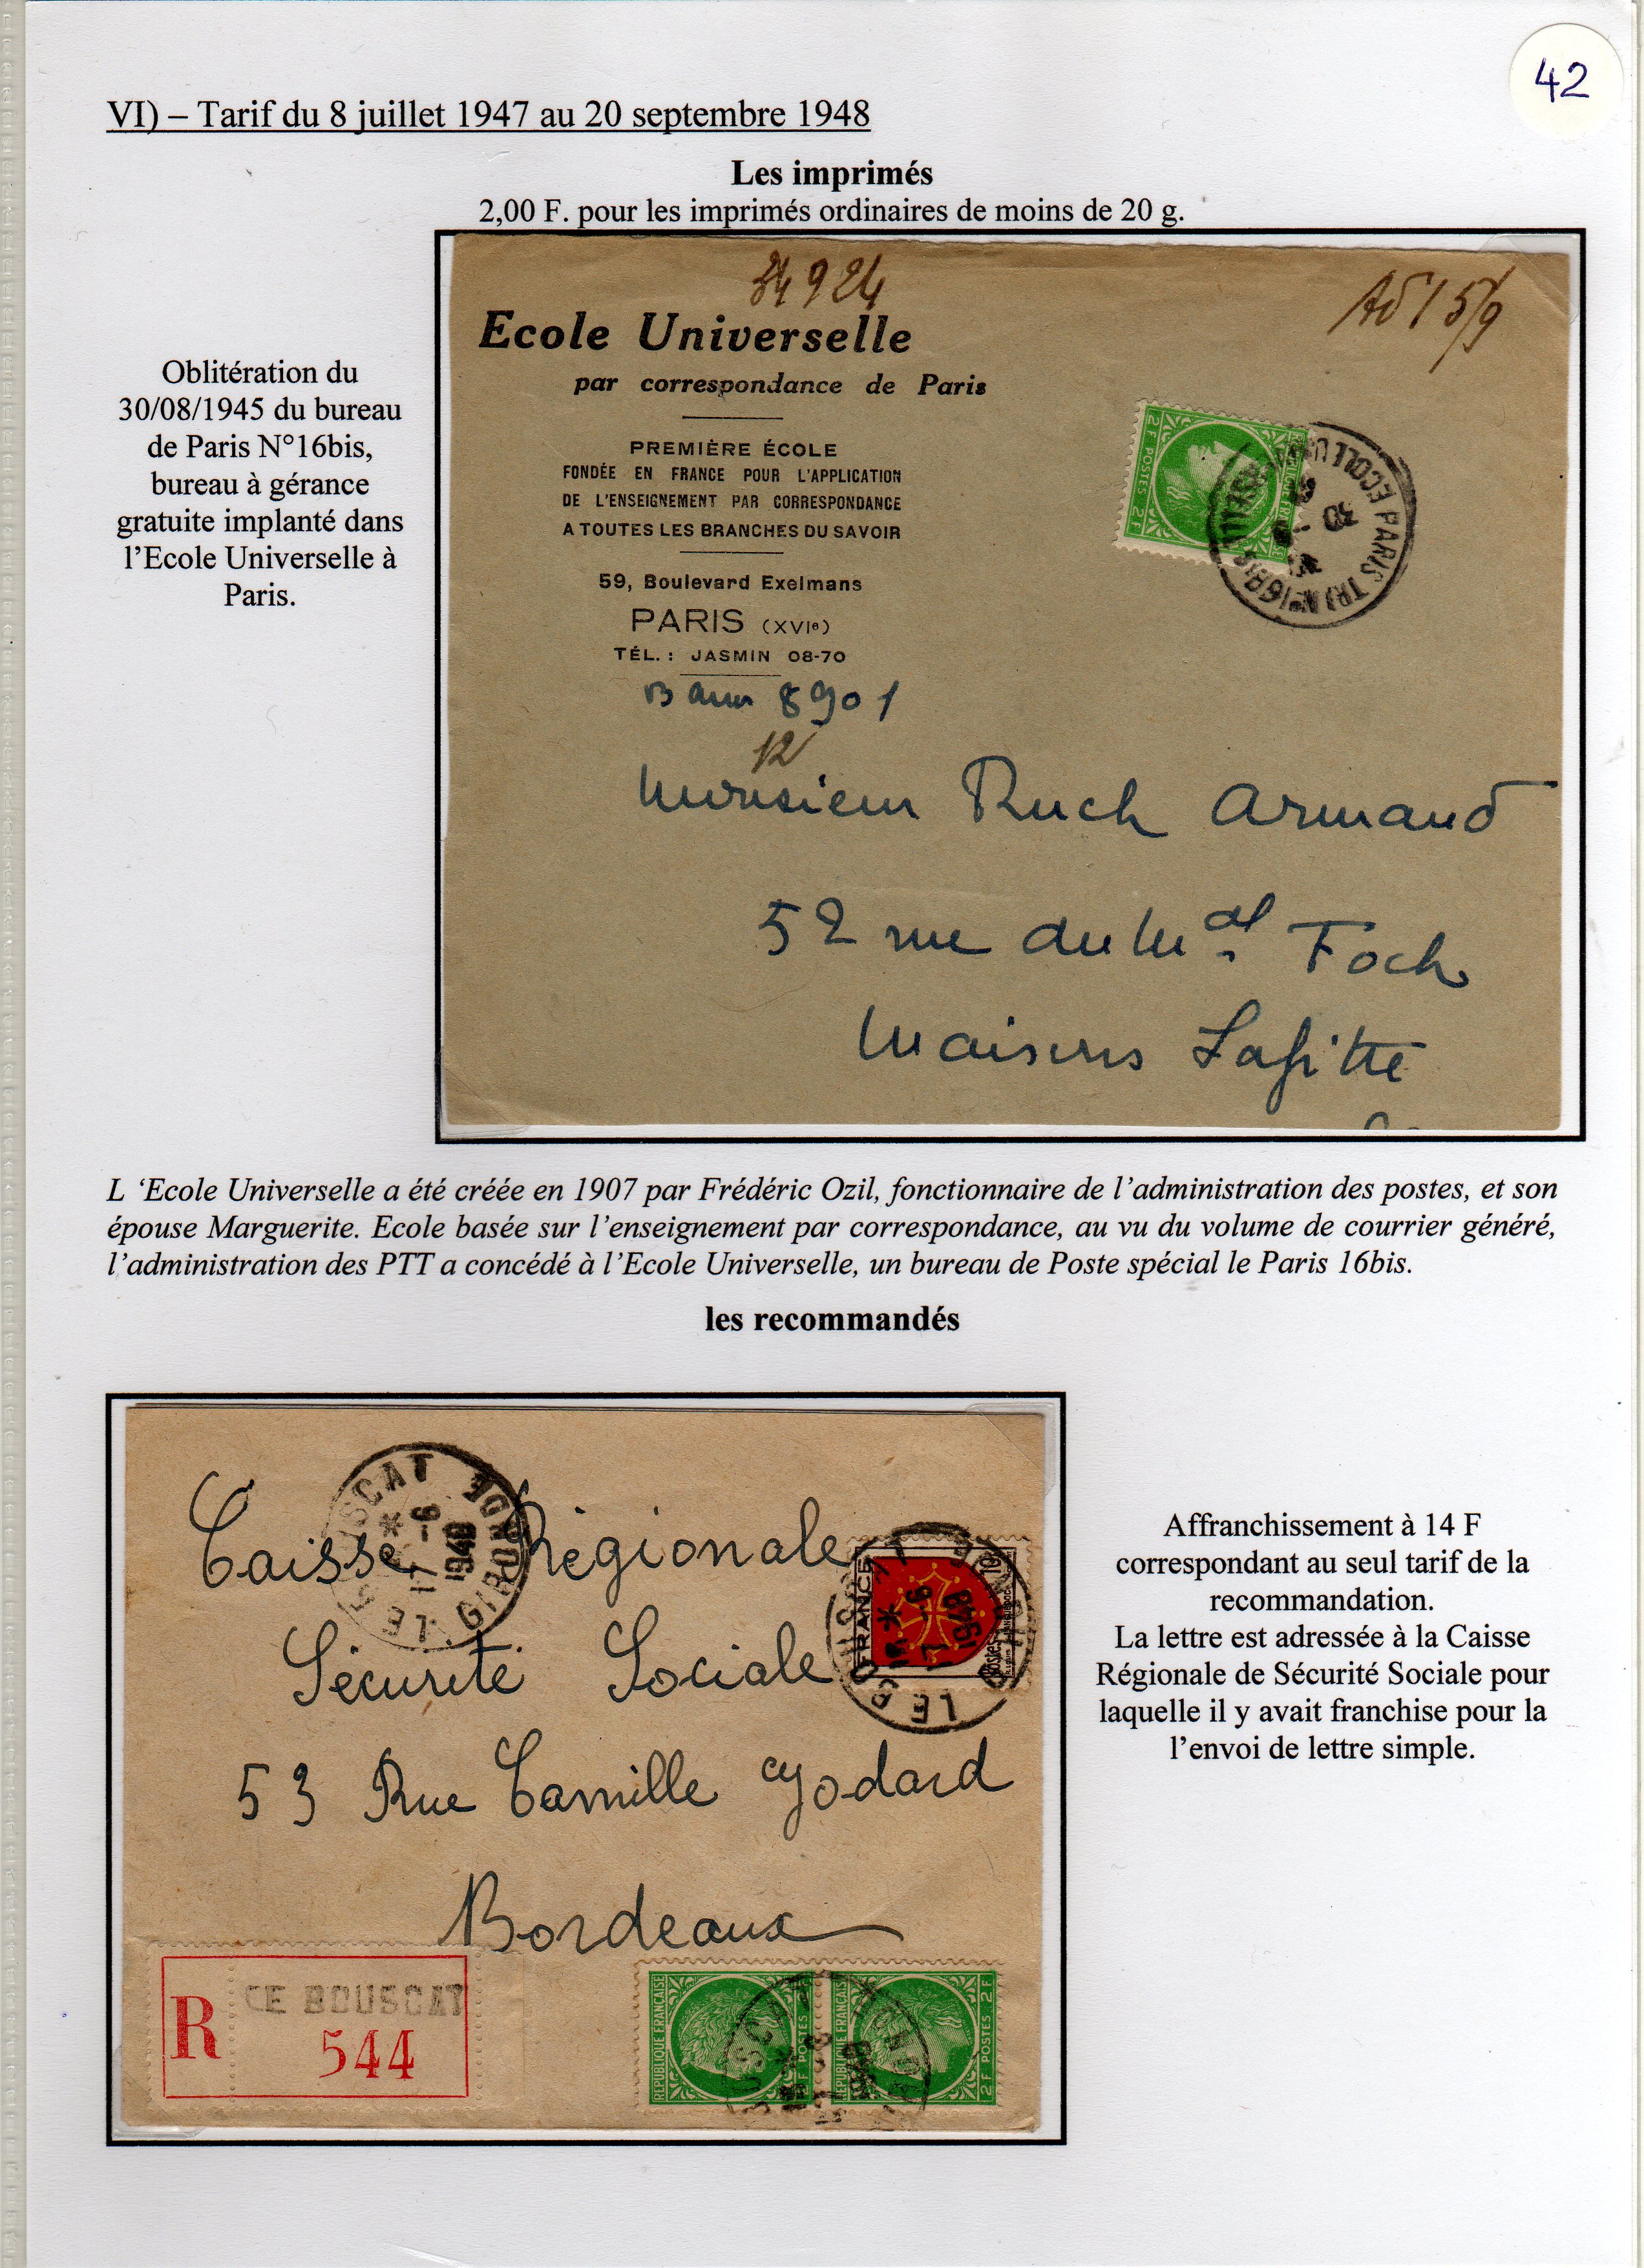 42
VI) – Tarif du 8 juillet 1947 au 20 septembre 1948
Les imprimés
2,00 F. pour les imprimés ordinaires de moins de 20 g.
Oblitération du
30/08/1945 du bureau
de Paris N°16bis,
bureau à gérance
gratuite implanté dans
l’Ecole Universelle à
Paris.
34924
Ecole Universelle
par correspondance de Paris
PREMIÈRE ÉCOLE
FONDÉE EN FRANCE POUR L'APPLICATION
DE L'ENSEIGNEMENT PAR CORRESPONDANCE
A TOUTES LES BRANCHES DU SAVOIR
59, Boulevard Exelmans
PARIS (XVIe)
TÉL. : JASMIN 08-70
8901
12
Monsieur Ruch Armand
52 rue du Mal Foch
Maisons Lafitte
2 F POSTES 2 F
ECOLE PARIS
L ‘Ecole Universelle a été créée en 1907 par Frédéric Ozil, fonctionnaire de l’administration des postes, et son
épouse Marguerite. Ecole basée sur l’enseignement par correspondance, au vu du volume de courrier généré,
l’administration des PTT a concédé à l’Ecole Universelle, un bureau de Poste spécial le Paris 16bis.
les recommandés
Caisse Régionale
Sécurité Sociale
53 Rue Camille Godard
Bordeaux
LE BOUSCAT GIRONDE
17 -6
1948
FRANCE
R
LE BOUSCAT
544
REPUBLIQUE FRANCAISE
2 F POSTES 2 F
REPUBLIQUE FRANCAISE
2 F POSTES 2 F
Affranchissement à 14 F
correspondant au seul tarif de la
recommandation.
La lettre est adressée à la Caisse
Régionale de Sécurité Sociale pour
laquelle il y avait franchise pour la
l’envoi de lettre simple.